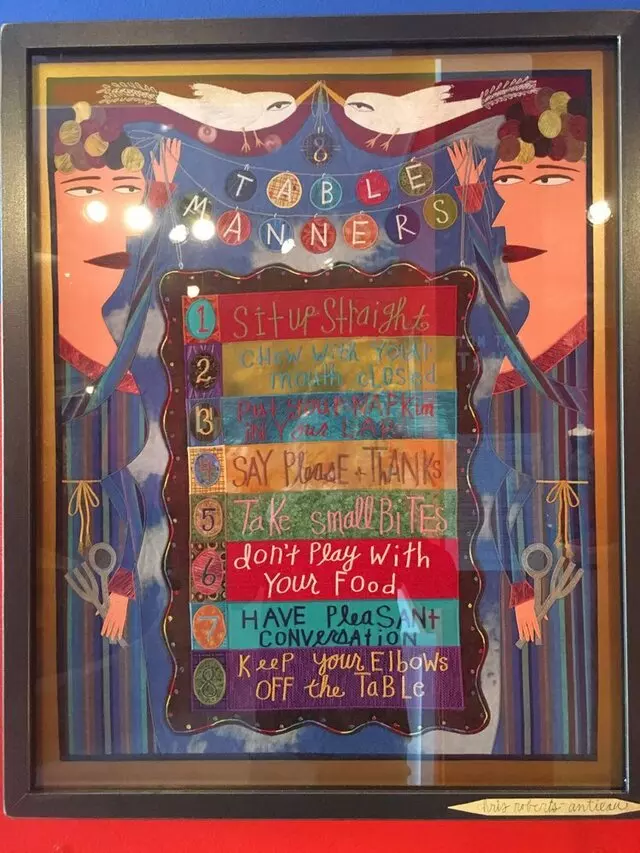 8
TABLE
MANNERS
1 Sit up Straight
2 CHEW With Your
mouth cLOSed
3 Put Your NAPKin
iN Your LAP
4 SAY PleasE + THANKs
5 TaKe small BiTES
6 don't Play With
Your Food
7 HAVE PleaSANt
CONVERSATION
8 KeeP your Elbows
OFF the TaBLe
chris roberts-antieau